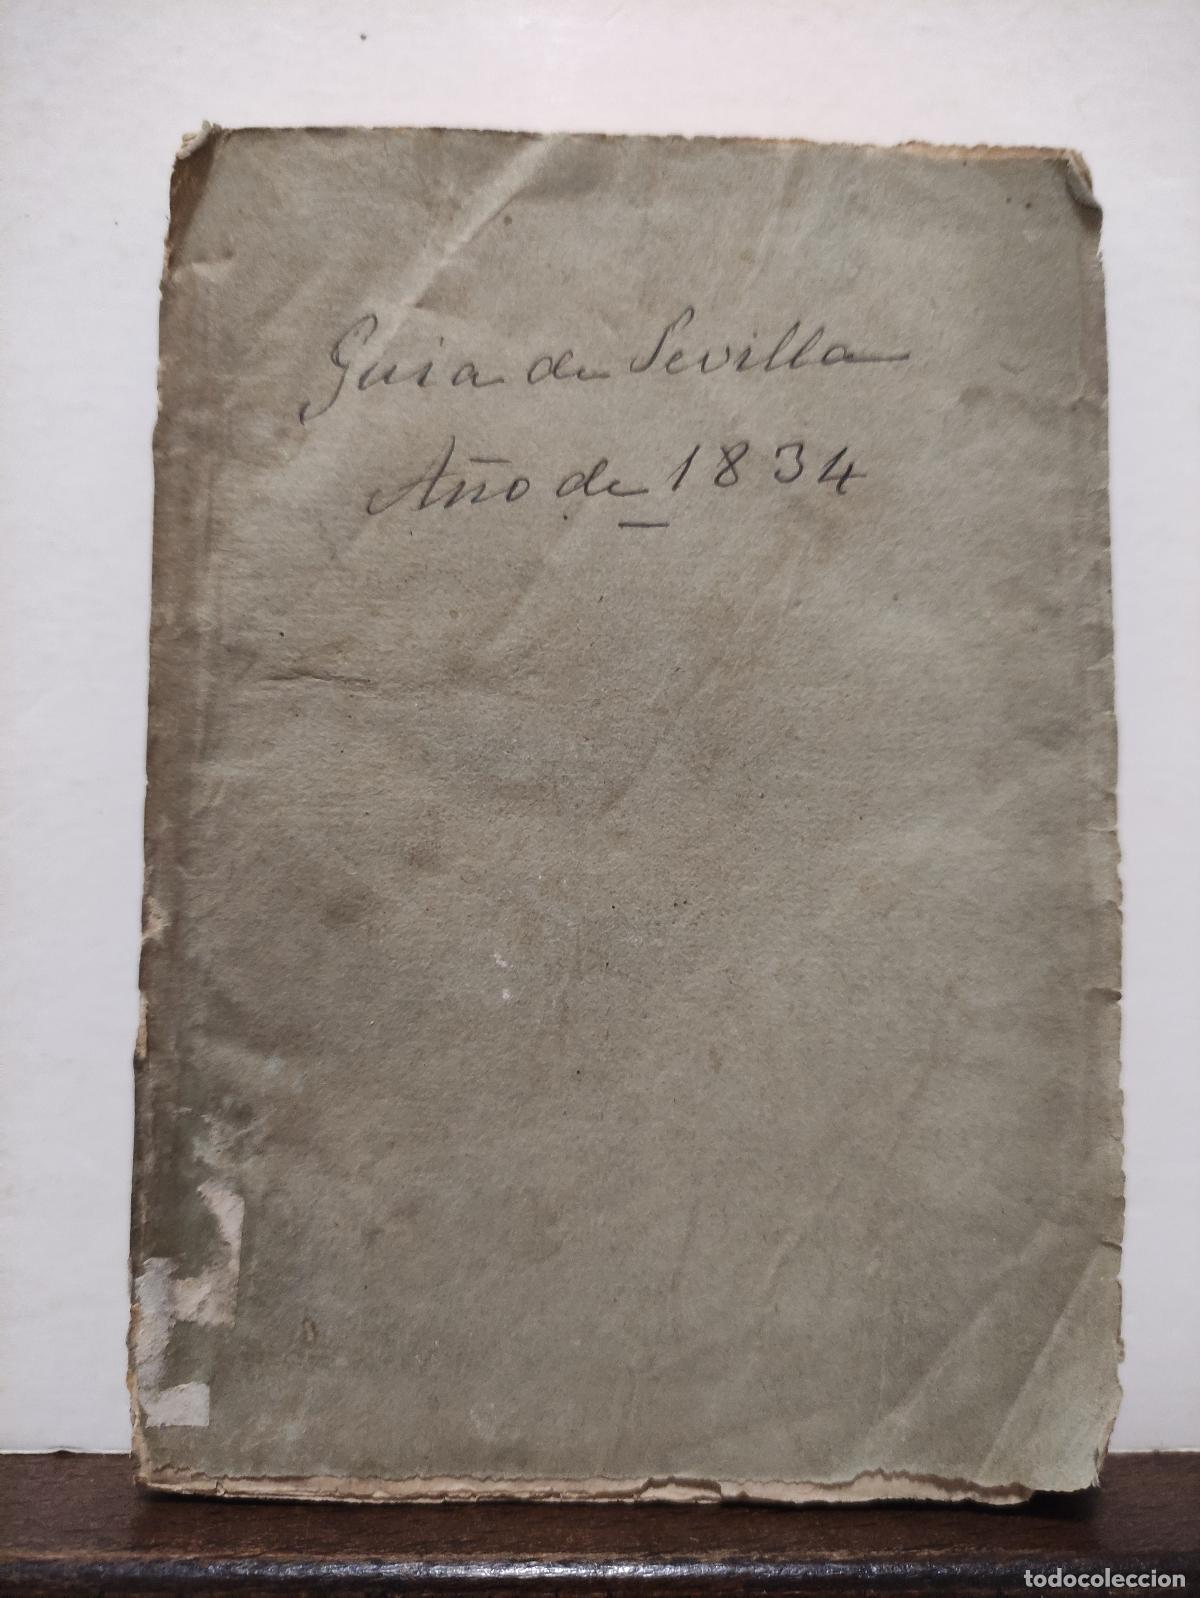 Guia de Sevilla
Año de 1834
todocoleccion